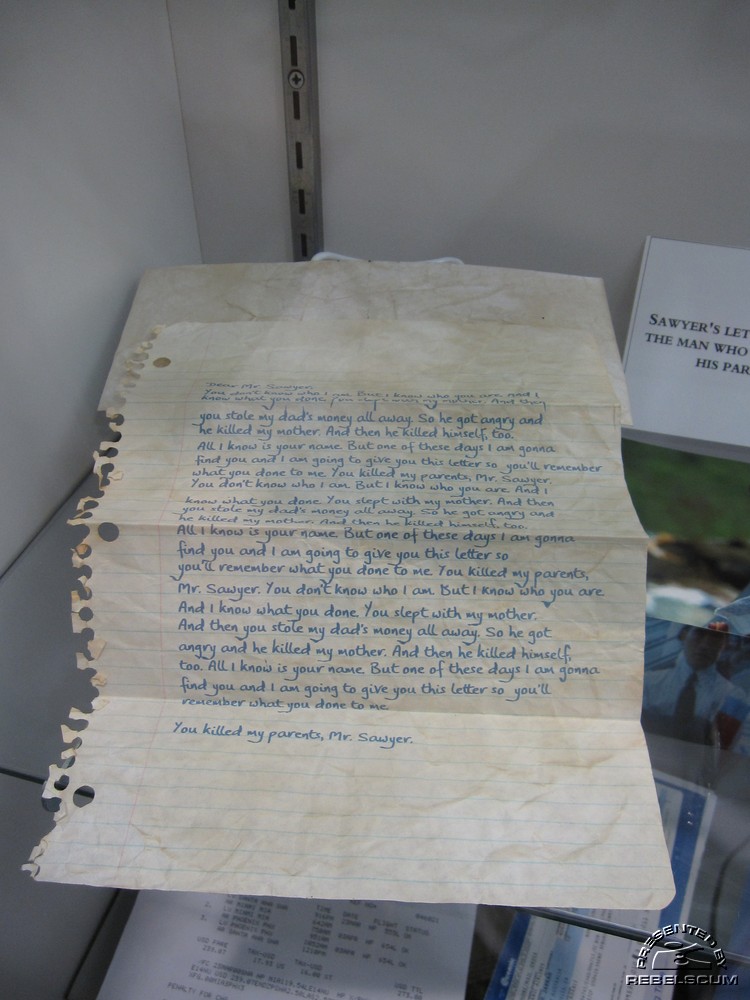 Dear Mr. Sawyer.
You don't know who I am. But I know who you are. And I
know what you done. You slept with my mother. And then
you stole my dad's money all away. So he got angry and
he killed my mother. And then he killed himself, too.
All I know is your name. But one of these days I am gonna
find you and I am going to give you this letter so you'll remember
what you done to me. You killed my parents, Mr. Sawyer.
You don't know who I am. But I know who you are. And I
know what you done. You slept with my mother. And then
you stole my dad's money all away. So he got angry and
he killed my mother. And then he killed himself, too.
All I know is your name. But one of these days I am gonna
find you and I am going to give you this letter so
you'll remember what you done to me. You killed my parents,
Mr. Sawyer. You don't know who I am. But I know who you are
And I know what you done. You slept with my mother.
And then you stole my dad's money all away. So he got
angry and he killed my mother. And then he killed himself,
too. All I know is your name. But one of these days I am gonna
find you and I am going to give you this letter so you'll
remember what you done to me
You killed my parents, Mr. Sawyer.
SAWYER'S LET
THE MAN WHO
HIS PAR
TIME DATE FLIGHT STATUS
USD FARE
PRESENTED BY
REBELSCUM